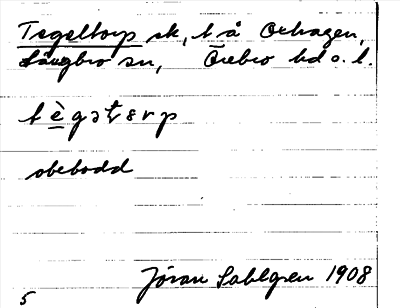 Tegeltorp sk, t å Oxhagen,
Längbro sn, Örebro hd o. l.
tègətərp
obebodd
Jöran Sahlgren 1908
5